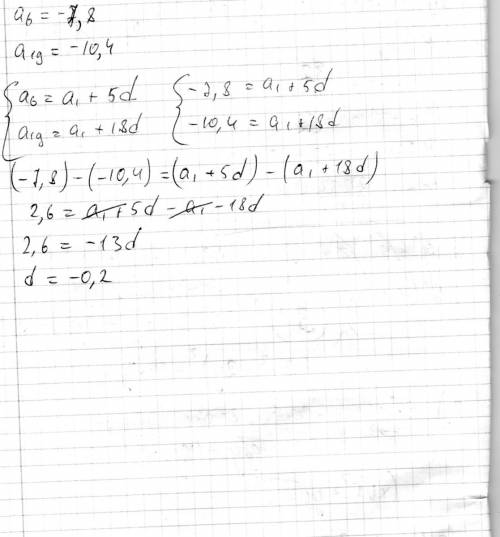 a₆ = -7,8
a₁₉ = -10,4
{ a₆ = a₁ + 5d { -7,8 = a₁ + 5d
{ a₁₉ = a₁ + 18d { -10,4 = a₁ + 18d
(-7,8) - (-10,4) = (a₁ + 5d) - (a₁ + 18d)
2,6 = a₁ + 5d - a₁ - 18d
2,6 = -13d
d = -0,2